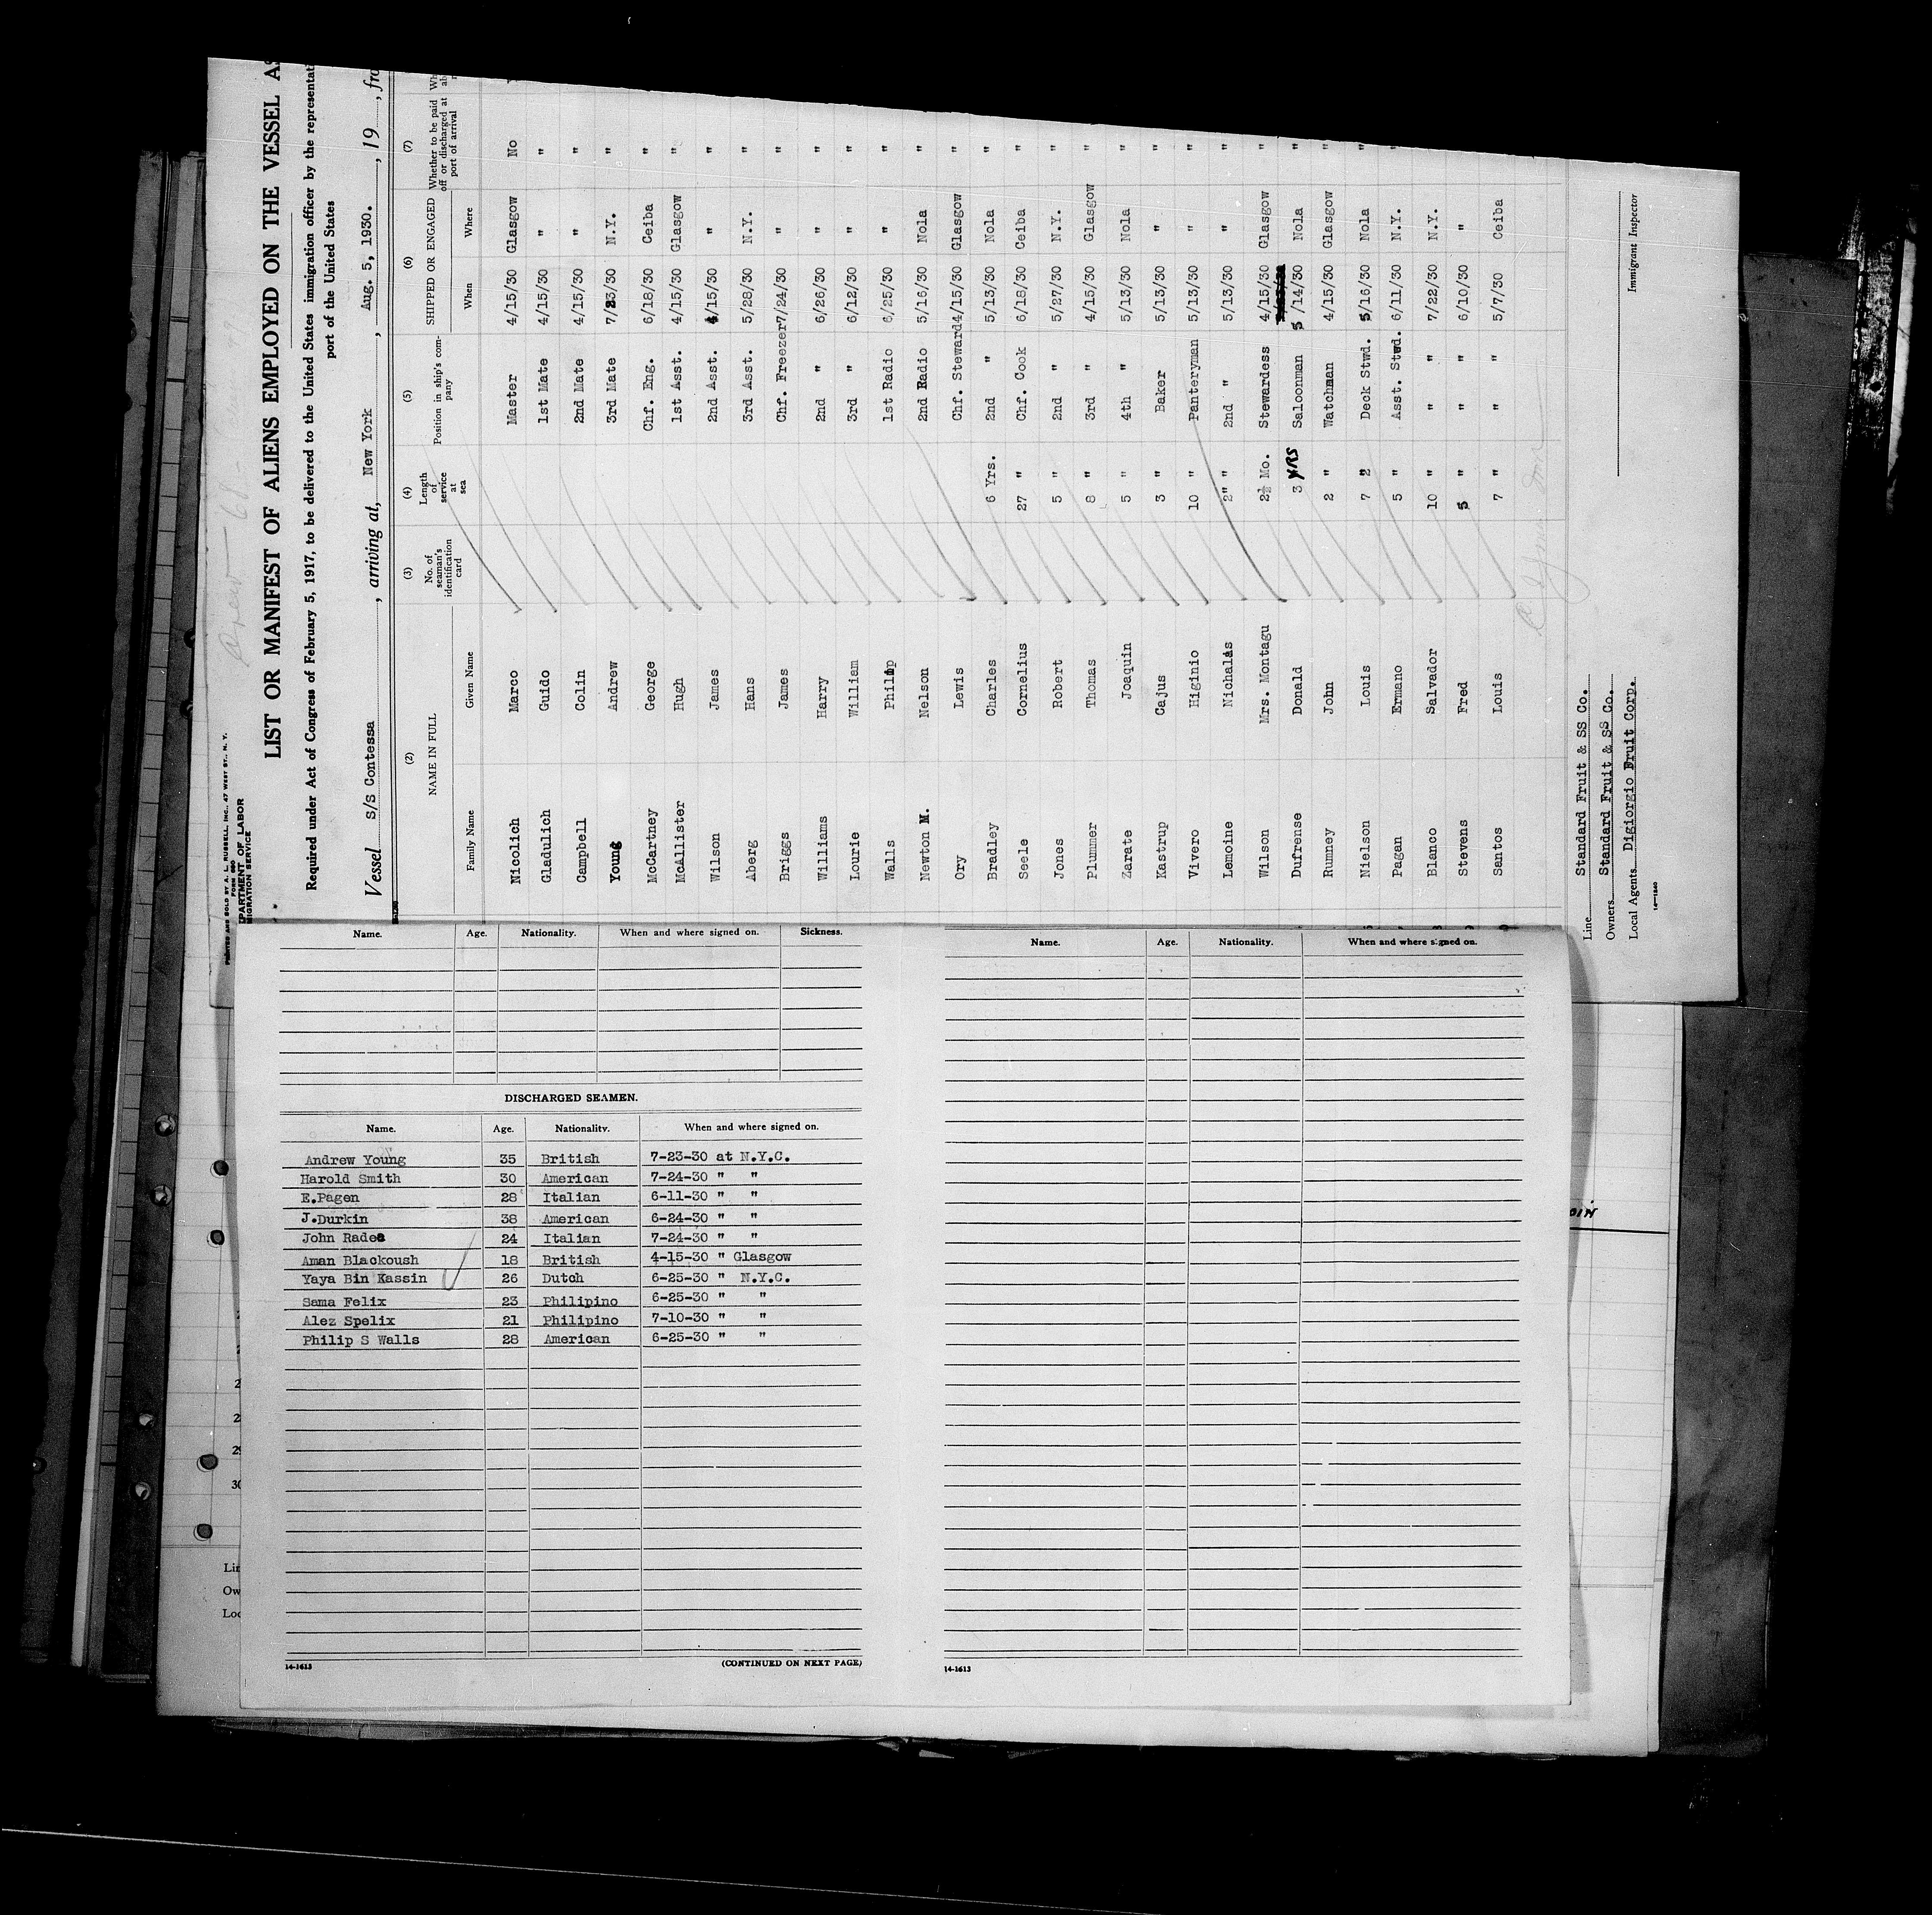 PRINTED AND SOLD BY A. L. RUSSELL, INC., 47 WEST ST., N. Y.
FORM 680
PARTMENT OF LABOR
MIGRATION SERVICE
Crew - 68
LIST OR MANIFEST OF ALIENS EMPLOYED ON THE VESSEL AS
Required under Act of Congress of February 5, 1917, to be delivered to the United States immigration officer by the representati
port of the United States
Vessel S/S Contessa, arriving at, New York, Aug. 5, 1930., 19, fro
(2) (3) (4) (5) (6) (7)
NAME IN FULL No. of seaman's identification card Length of service at sea Position in ship's company SHIPPED OR ENGAGED Whether to be paid off or discharged at port of arrival
Family Name Given Name When Where
Nicolich Marco Master 4/15/30 Glasgow No
Gladulich Guido 1st Mate 4/15/30 " "
Campbell Colin 2nd Mate 4/15/30 " "
Young Andrew 3rd Mate 7/23/30 N.Y. "
McCartney George Chf. Eng. 6/18/30 Ceiba "
McAllister Hugh 1st Asst. 4/15/30 Glasgow "
Wilson James 2nd Asst. 4/15/30 " "
Aberg Hans 3rd Asst. 5/28/30 N.Y. "
Briggs James Chf. Freezer 7/24/30 " "
Williams Harry 2nd " 6/26/30 " "
Lourie William 3rd " 6/12/30 " "
Walls Philip 1st Radio 6/25/30 " "
Newton M. Nelson 2nd Radio 5/16/30 Nola "
Ory Lewis Chf. Steward 4/15/30 Glasgow "
Bradley Charles 6 Yrs. 2nd " 5/13/30 Nola "
Seele Cornelius 27 " Chf. Cook 6/18/30 Ceiba "
Jones Robert 5 " 2nd " 5/27/30 N.Y. "
Plummer Thomas 8 " 3rd " 4/15/30 Glasgow "
Zarate Joaquin 5 " 4th " 5/13/30 Nola "
Kastrup Cajus 3 " Baker 5/13/30 " "
Vivero Higinio 10 " Panteryman 5/13/30 " "
Lemoine Nichalas 2" " 2nd " 5/13/30 " "
Wilson Mrs. Montagu 2½ Mo. Stewardess 4/15/30 Glasgow "
Dufrense Donald 3 YRS Saloonman 5/14/30 Nola "
Rumney John 2 " Watchman 4/15/30 Glasgow "
Nielson Louis 7 2 " Deck Stwd. 5/16/30 Nola "
Pagan Ermano 5 " Asst. Stwd. 6/11/30 N.Y. "
Blanco Salvador 10 " " " 7/22/30 N.Y.
Stevens Fred 5 " " " 6/10/30 "
Santos Louis 7 " " " 5/7/30 Ceiba
Line Standard Fruit & SS Co.
Owners Standard Fruit & SS Co.
Local Agents Digiorgio Fruit Corp.
Immigrant Inspector
14-1240
Name. Age. Nationality. When and where signed on. Sickness.
DISCHARGED SEAMEN.
Name. Age. Nationality. When and where signed on.
Andrew Young 35 British 7-23-30 at N.Y.C.
Harold Smith 30 American 7-24-30 " "
E.Pagen 28 Italian 6-11-30 " "
J.Durkin 38 American 6-24-30 " "
John Rades 24 Italian 7-24-30 " "
Aman Blackoush 18 British 4-15-30 " Glasgow
Yaya Bin Kassin 26 Dutch 6-25-30 " N.Y.C.
Sama Felix 23 Philipino 6-25-30 " "
Alez Spelix 21 Philipino 7-10-30 " "
Philip S Walls 28 American 6-25-30 " "
14-1613
(CONTINUED ON NEXT PAGE)
Name. Age. Nationality. When and where signed on.
14-1613
2
2
29
30
Lin
Ow
Loc